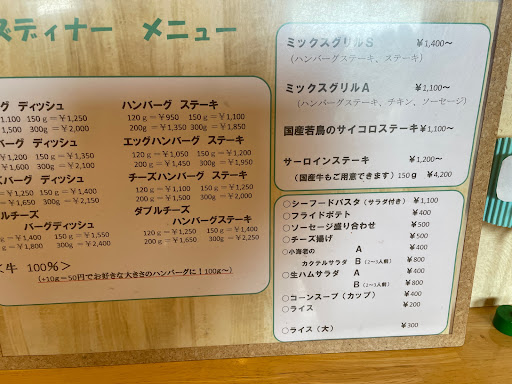 ズディナー メニュー
グ ディッシュ
1.100 150g=¥1,250
1,500 300g=¥2,000
バーグ ディッシュ
=¥1,200 150g=¥1,350
=¥1,600 300g=¥2,100
バーグ ディッシュ
=¥1,250 150g=¥1,400
=¥1,650 300g=¥2,150
ルチーズ
バーグディッシュ
=¥1,400 150g=¥1,550
=¥1,800 300g=¥2,400
牛 100%>
(+10g=50円でお好きな大きさのハンバーグに!100g~)
ハンバーグ ステーキ
120g=¥950 150g=¥1,100
200g=¥1,350 300g=¥1,850
エッグハンバーグ ステーキ
120g=¥1,050 150g=¥1,200
200g=¥1,450 300g=¥1,950
チーズハンバーグ ステーキ
120g=¥1,100 150g=¥1,250
200g=¥1,500 300g=¥2,000
ダブルチーズ
ハンバーグステーキ
120g=¥1,250 150g=¥1,400
200g=¥1,650 300g=¥2,250
ミックスグリルS ¥1,400~
(ハンバーグステーキ、ステーキ)
ミックスグリルA ¥1,100~
(ハンバーグステーキ、チキン、ソーセージ)
国産若鳥のサイコロステーキ¥1,100~
サーロインステーキ ¥1,200~
(国産牛もご用意できます)150g ¥4,200
○シーフードパスタ(サラダ付き) ¥1,100
○フライドポテト ¥400
○ソーセージ盛り合わせ ¥500
○チーズ揚げ ¥500
○小海老の A ¥400
カクテルサラダ B(2~3人前) ¥800
○生ハムサラダ A ¥400
B(2~3人前) ¥800
○コーンスープ(カップ) ¥400
○ライス ¥200
○ライス(大) ¥300